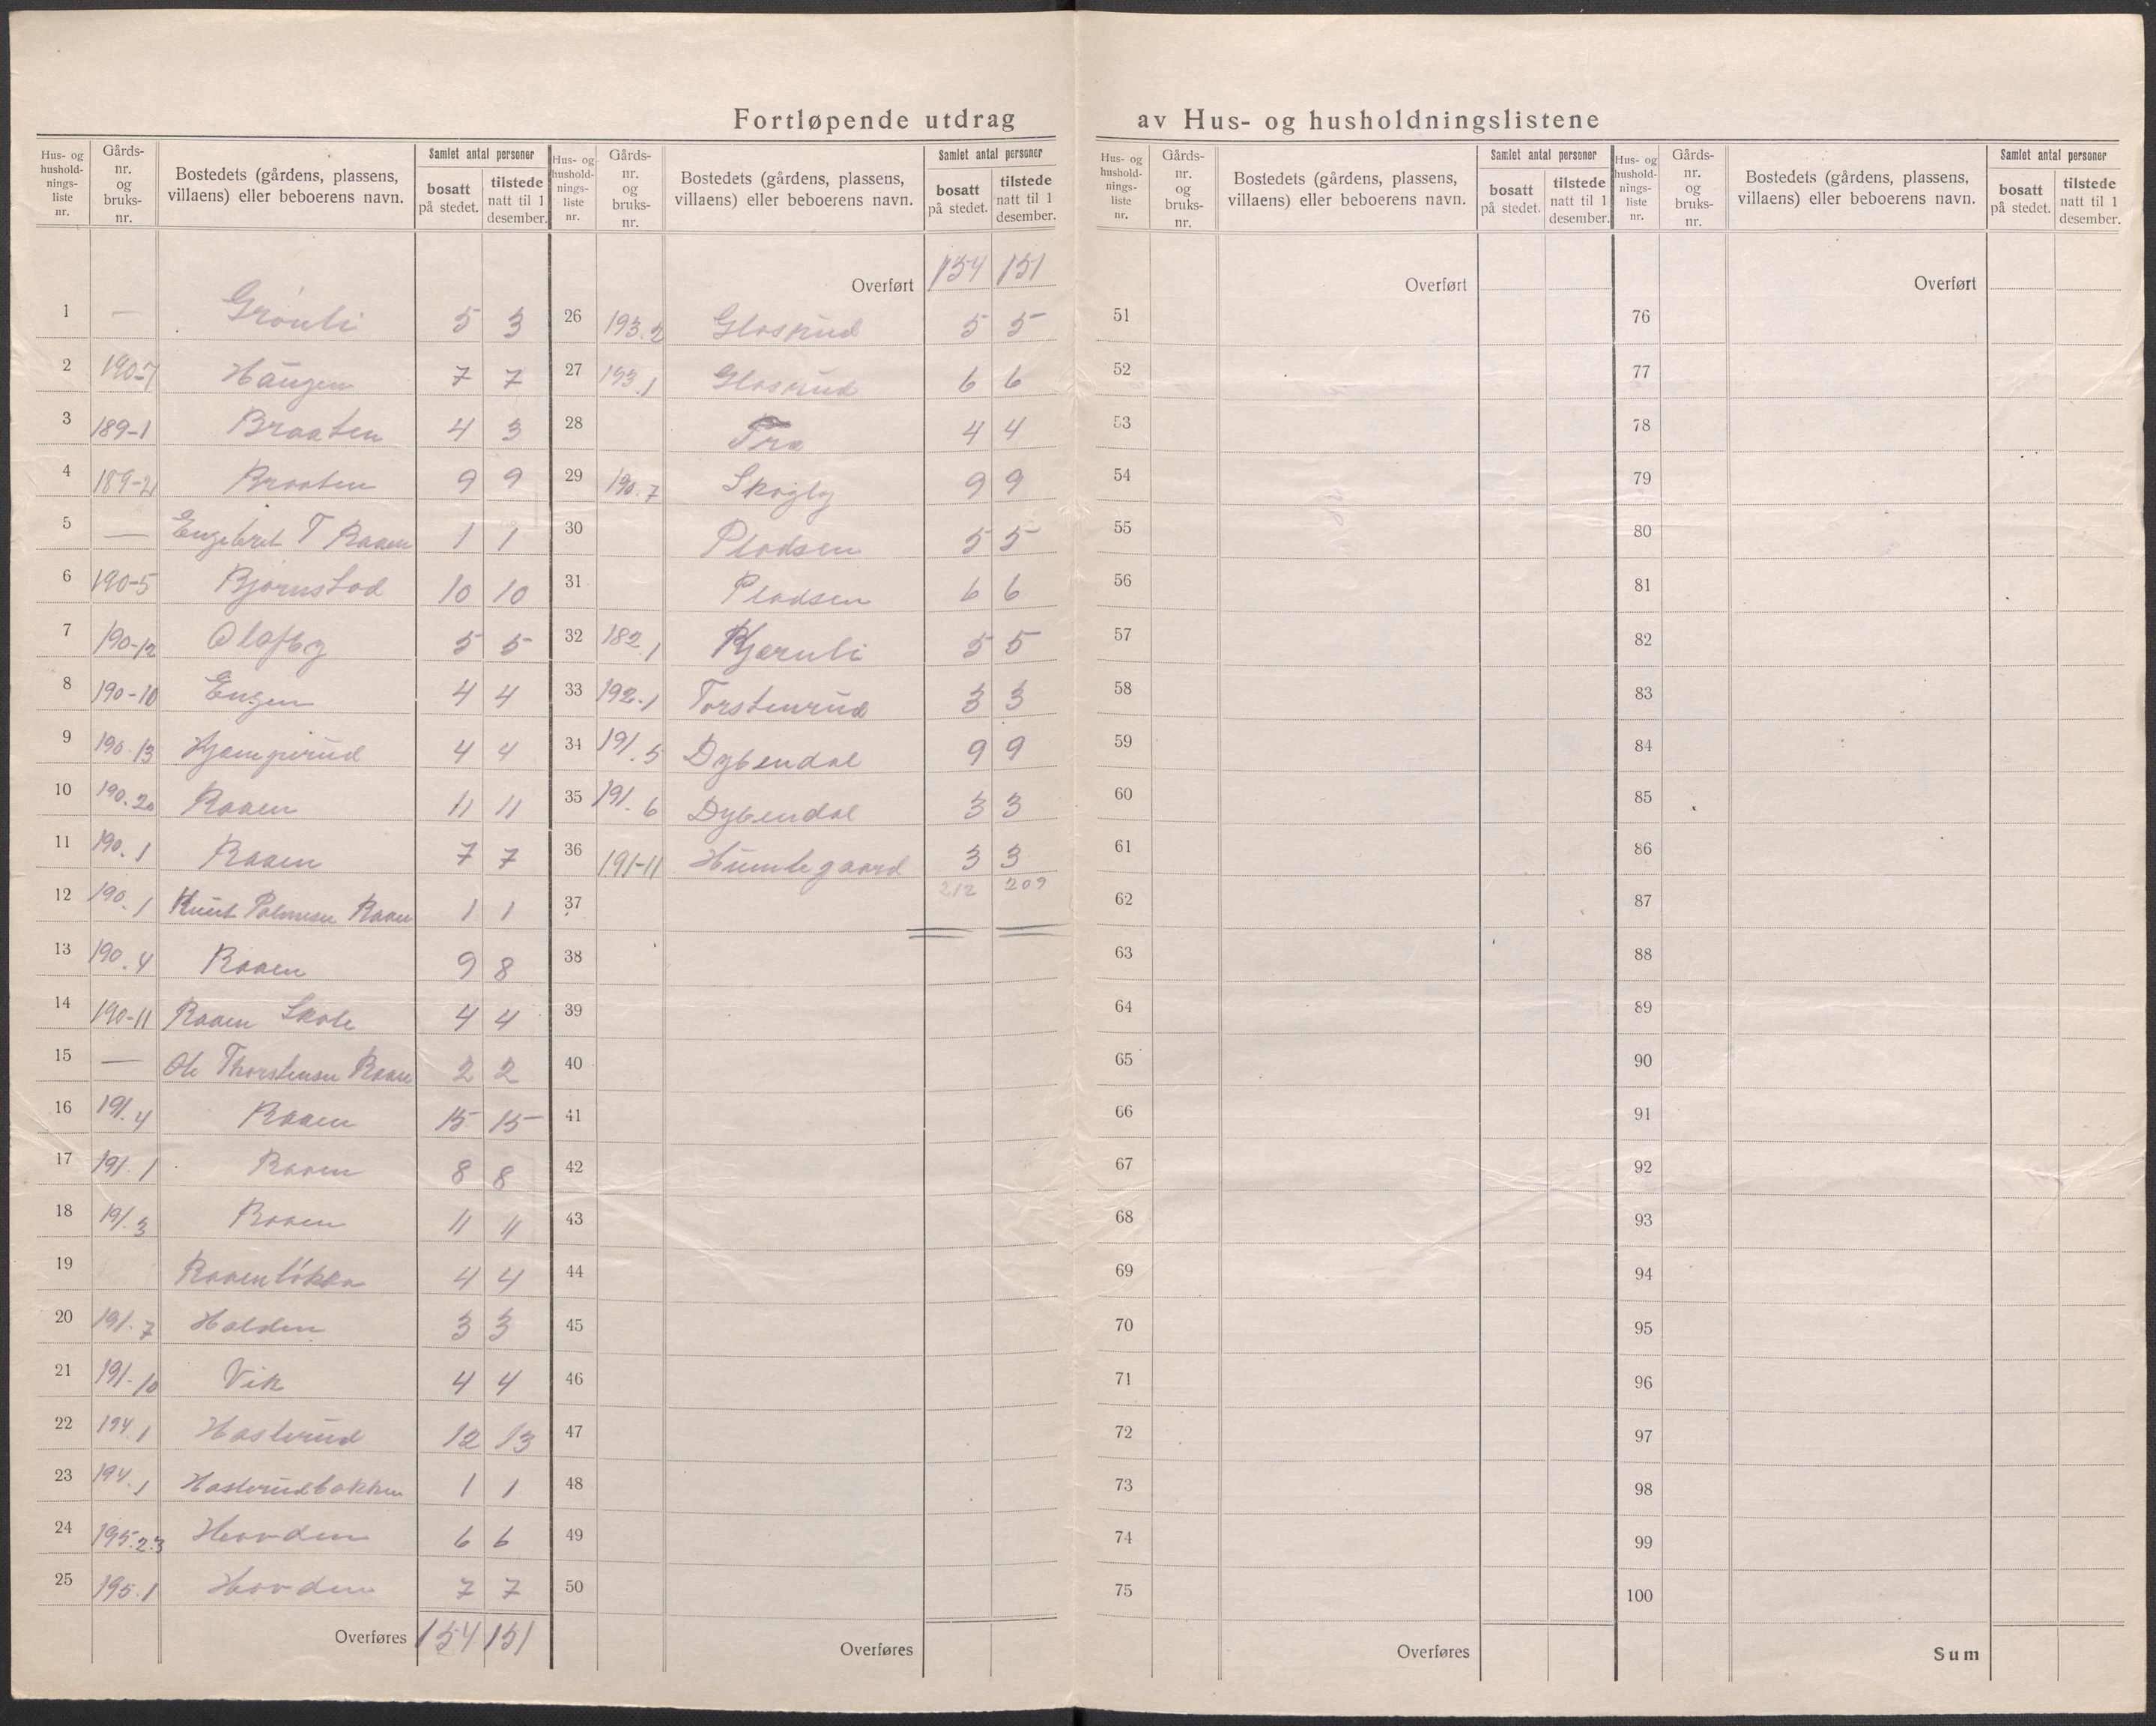 Fortløpende utdrag av Hus- og husholdningslistene
Hus- og hushold-nings-liste nr. Gårds-nr. og bruks-nr. Bostedets (gårdens, plassens, villaens) eller beboerens navn. Samlet antal personer bosatt på stedet. tilstede natt til 1 desember.
1 — Grønli 5 3
2 190-7 Haugen 7 7
3 189-1 Braaten 4 3
4 189-2 Braaten 9 9
5 — Engebret T Raaen 1 1
6 190-5 Bjørnstad 10 10
7 190-12 Olafby 5 5
8 190-10 Engen 4 4
9 190.13 Hjamperud 4 4
10 190.20 Raaen 11 11
11 190.1 Raaen 7 7
12 190.1 Knut Palmesen Raaen 1 1
13 190.4 Raaen 9 8
14 190-11 Raaen Skole 4 4
15 — Ole Thorstensen Raaen 2 2
16 191.4 Raaen 15 15
17 191.1 Raaen 8 8
18 191.3 Raaen 11 11
19 Raaenløkka 4 4
20 191.7 Halden 3 3
21 191-10 Vik 4 4
22 194.1 Haslerud 12 13
23 194.1 Haslerudbakken 1 1
24 195.2.3 Hovden 6 6
25 195.1 Hovden 7 7
Overføres 154 151
Hus- og hushold-nings-liste nr. Gårds-nr. og bruks-nr. Bostedets (gårdens, plassens, villaens) eller beboerens navn. Samlet antal personer bosatt på stedet. tilstede natt til 1 desember.
Overført 154 151
26 193.2 Glosrud 5 5
27 193.1 Glosrud 6 6
28 4 4
29 190.7 Skogly 9 9
30 Pladsen 5 5
31 Pladsen 6 6
32 182.1 Kjernli 5 5
33 192.1 Torstenrud 3 3
34 191.5 Dybendal 9 9
35 191.6 Dybendal 3 3
36 191-11 Humlegaard 3 3
37 212 209
38
39
40
41
42
43
44
45
46
47
48
49
50
Overføres
Hus- og hushold-nings-liste nr. Gårds-nr. og bruks-nr. Bostedets (gårdens, plassens, villaens) eller beboerens navn. Samlet antal personer bosatt på stedet. tilstede natt til 1 desember.
Overført
51
52
53
54
55
56
57
58
59
60
61
62
63
64
65
66
67
68
69
70
71
72
73
74
75
Overføres
Hus- og hushold-nings-liste nr. Gårds-nr. og bruks-nr. Bostedets (gårdens, plassens, villaens) eller beboerens navn. Samlet antal personer bosatt på stedet. tilstede natt til 1 desember.
Overført
76
77
78
79
80
81
82
83
84
85
86
87
88
89
90
91
92
93
94
95
96
97
98
99
100
Sum